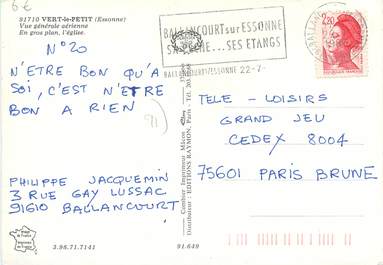 6€
91710 VERT-le-PETIT (Essonne)
Vue générale aérienne
En gros plan, l'église.
N°20
N'ETRE BON QU'A
SOI, C'EST N'ETRE
BON A RIEN
PHILIPPE JACQUEMIN
3 RUE GAY LUSSAC
91610 BALLANCOURT
3.98.71.7141
91.649
Combier Imprimeur Mâcon
Distributeur : EDITIONS RAYMON, Paris - Tél.
BALLANCOURT sur ESSONNE
SA PECHE... SES ETANGS
BALLANCOURT/ESSONNE 22-7-
2,20
TELE - LOISIRS
GRAND JEU
CEDEX 8004
75601 PARIS BRUNE